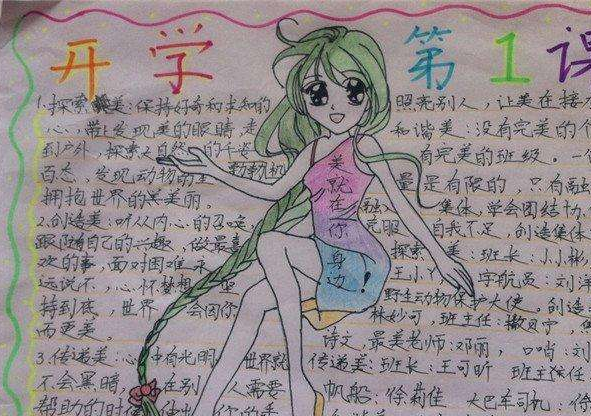 开学第1课
1.探索美:保持好奇和求知的
心,带上发现美的眼睛走
到户外,探索大自然的千姿
百态,发现动物的
拥抱世界的真美丽。
2.创造美:听从内心的召唤
跟随自己的兴趣,做最喜
欢的事,面对困难永
远说不,心怀梦想
持到底,世界会因你
而更美。
3.传递美:心中有光明 世界就
不会黑暗, 在别人需要
帮助的时候
美就在你身边!
照亮别人,让美在接
和谐美:没有完美的个
有完美的班级。一
量是有限的,只有融
集体,学会团结协
克服自我不足,创造集体
探索美:班长:小小彬,
王小丫,宇航员:刘洋
野生动物保护大使。创造
林妙可,班主任:撒贝宁,
诗文,最美老师:邓丽,口哨:刘
传递美:班长:王可昕 班主任
帆船:徐莉佳 大巴车司机: